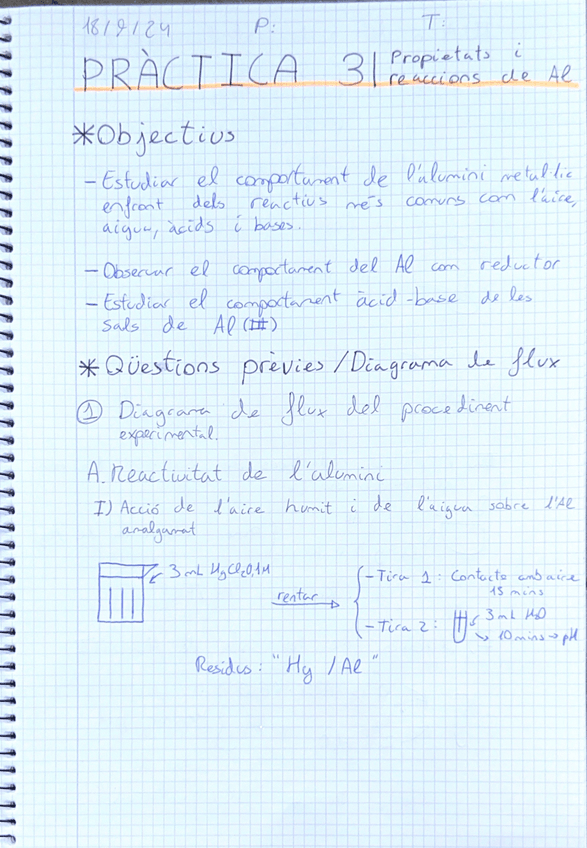 18/9/24 P: T:
PRÀCTICA 3| Propietats i
reaccions de Al
*Objectius
- Estudiar el comportament de l'alumini metal·lic
enfront dels reactius més comuns com l'aire,
aigua, àcids i bases.
- Observar el comportament del Al com reductor
- Estudiar el comportament àcid-base de les
sals de Al (III)
* Qüestions prèvies / Diagrama de flux
① Diagrama de flux del procediment
experimental.
A. Reactivitat de l'alumini
I) Acció de l'aire humit i de l'aigua sobre l'Al
analgamat
3 mL HgCl2 0,1M
rentar
- Tira 1: Contacto amb aire
15 mins
- Tira 2: 3 mL H2O
10 mins → pH
Residus: "Hg / Al"